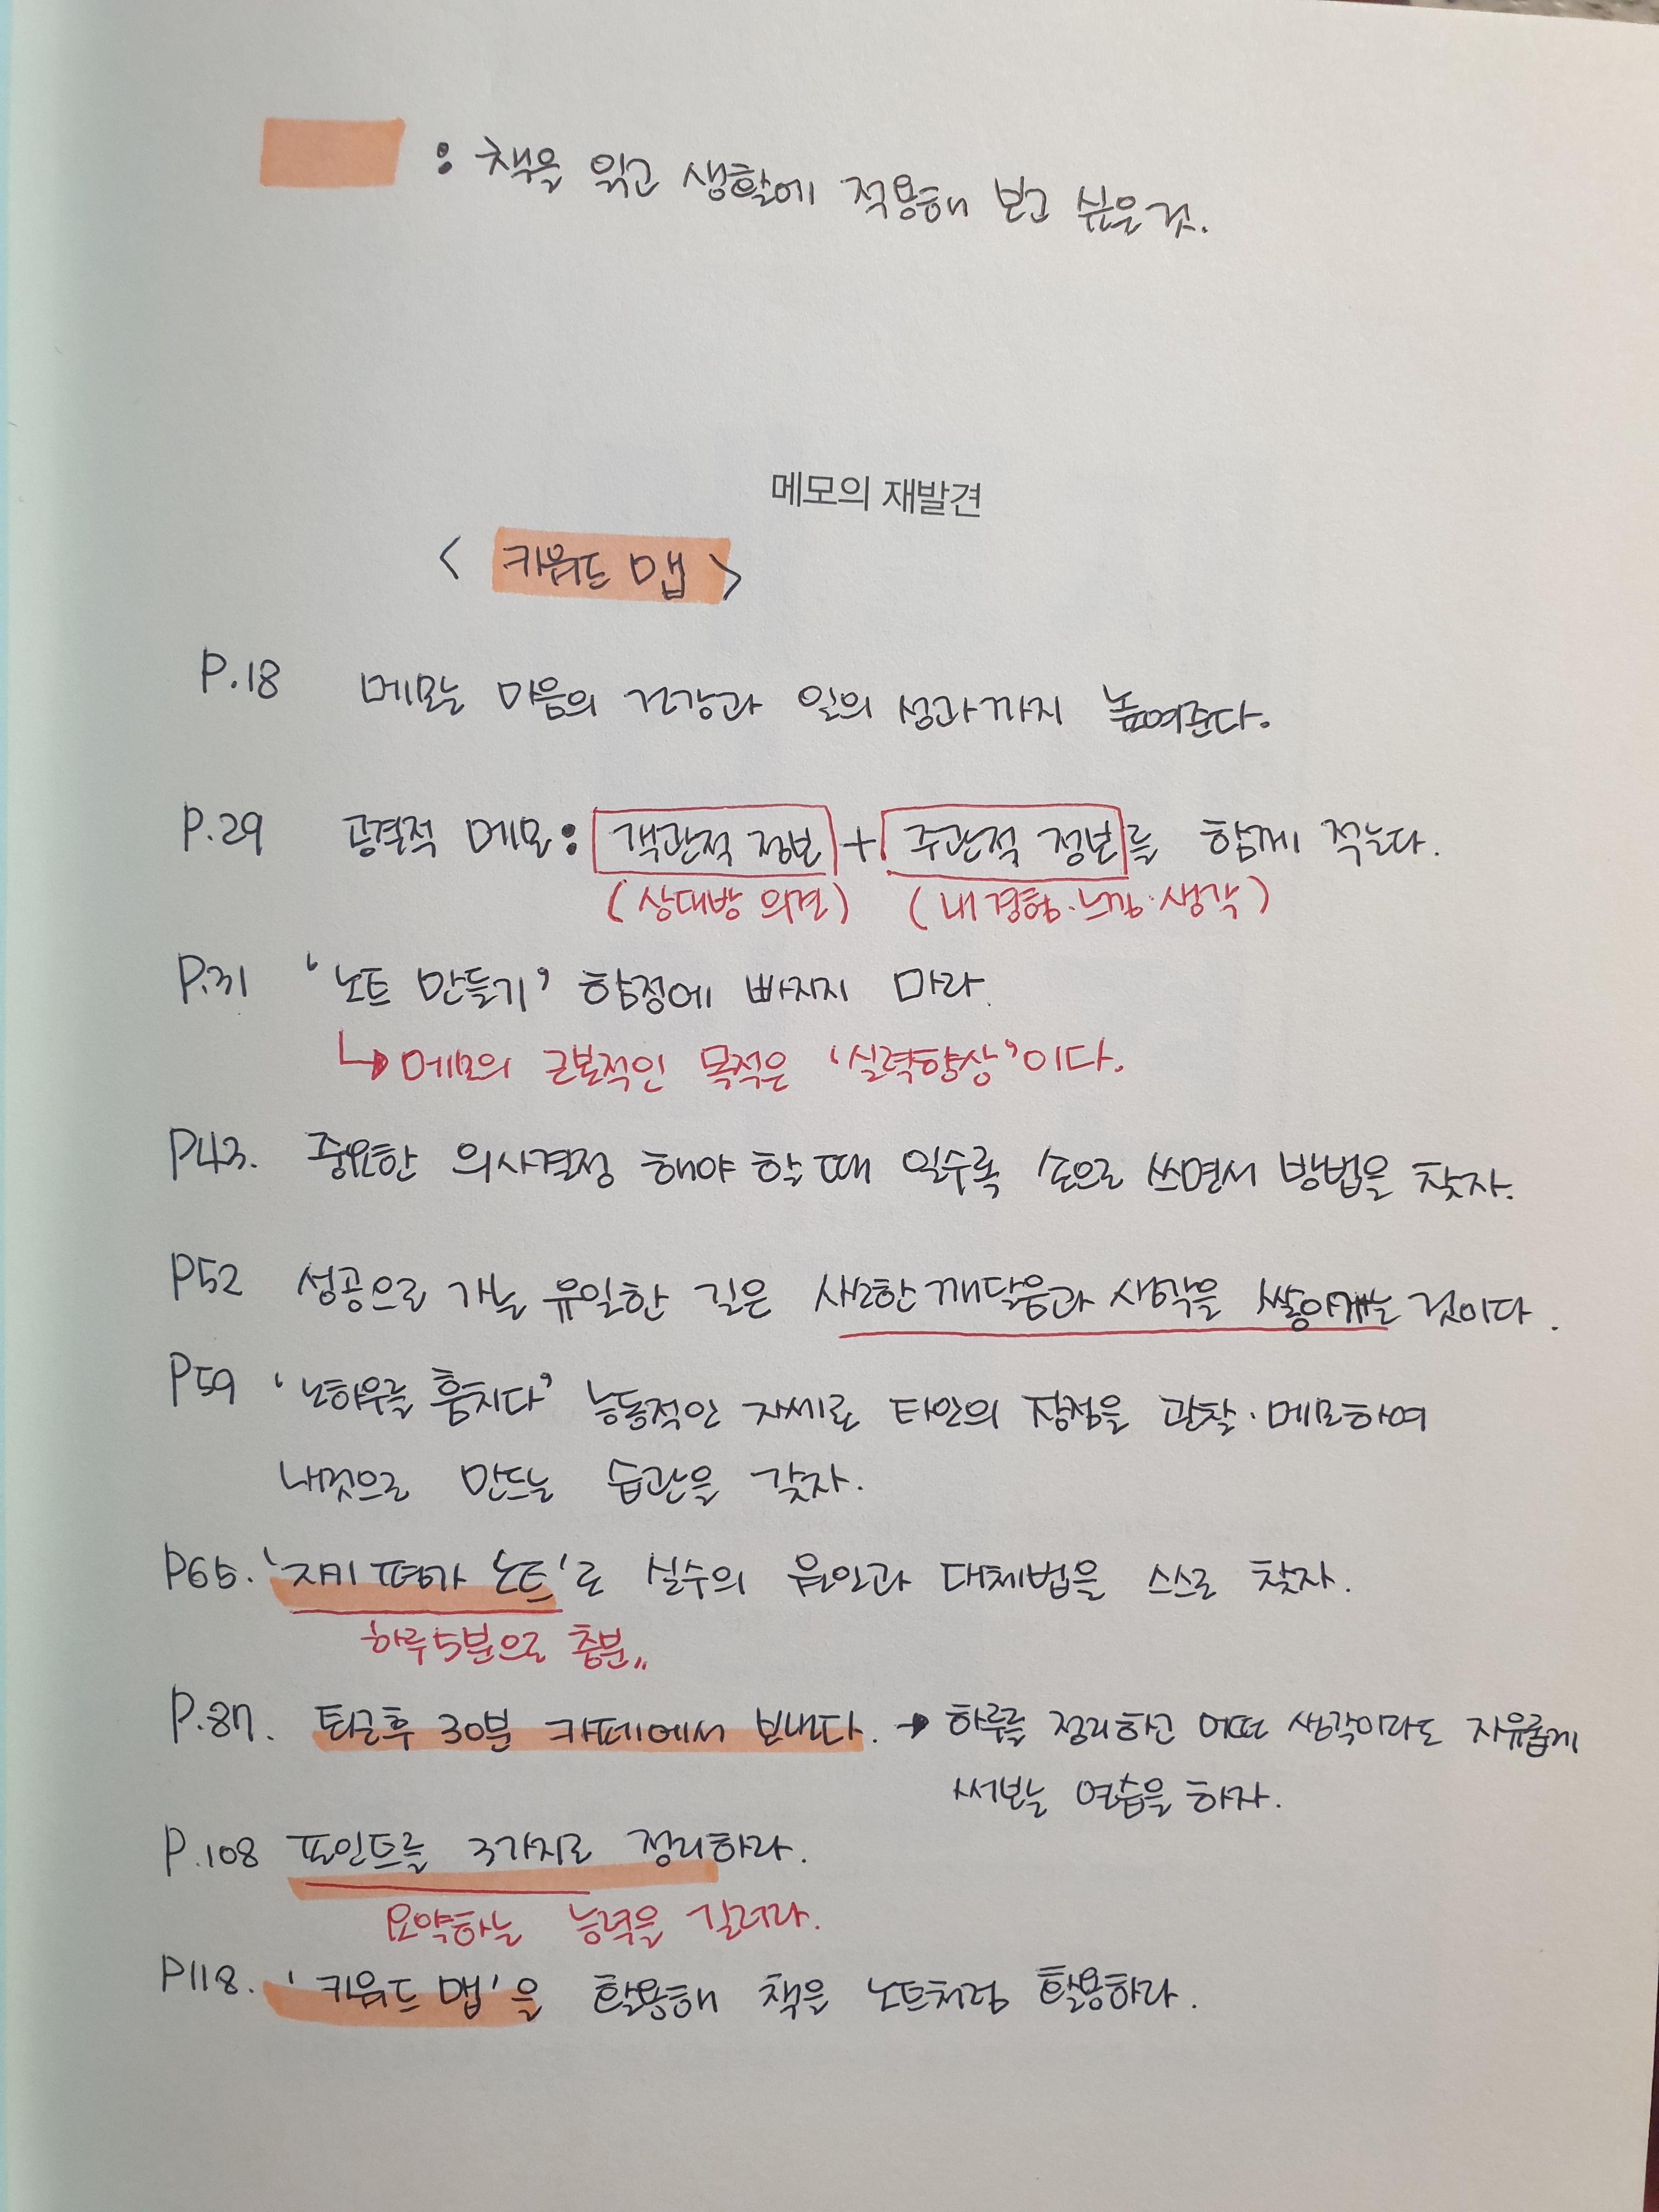 : 책을 읽고 생활에 적용해 보고 싶은 것.
메모의 재발견
< 키워드 맵 >
P.18 메모는 마음의 건강과 일의 성과까지 높여준다.
P.29 공격적 메모: 객관적 정보 + 주관적 정보를 함께 적는다.
(상대방 의견) (내 경험·느낌·생각)
P.31 '노트 만들기' 함정에 빠지지 마라.
↳ 메모의 근본적인 목적은 '실력향상'이다.
P43. 중요한 의사결정 해야 할 때 일수록 손으로 쓰면서 방법을 찾자.
P52 성공으로 가는 유일한 길은 사소한 깨달음과 생각을 것이다.
P59 '노하우를 훔치다' 능동적인 자세로 타인의 장점을 관찰·메모하여
내것으로 만드는 습관을 갖자.
P65. '자기 평가 노트'로 실수의 원인과 대체법을 스스로 찾자.
하루 5분으로 충분"
P.87. 퇴근후 30분 카페에서 보내다. → 하루를 정리하고 어떤 생각이라도 자유롭게
써보는 연습을 하자.
P.108 포인트를 3가지로 정리하라.
요약하는 능력을 길러라.
P118. '키워드 맵'을 활용해 책을 노트처럼 활용하라.